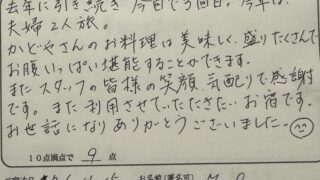 去年に引き続き 今日で3回目。今年は、
夫婦2人旅。
かどやさんのお料理は美味しく、盛りたくさんで
お腹いっぱい堪能することができます。
またスタッフの皆様の笑顔、気配りで感謝
です。また利用させていただきたいお宿です。
お世話になりありがとうございました。
10点満点で 9 点